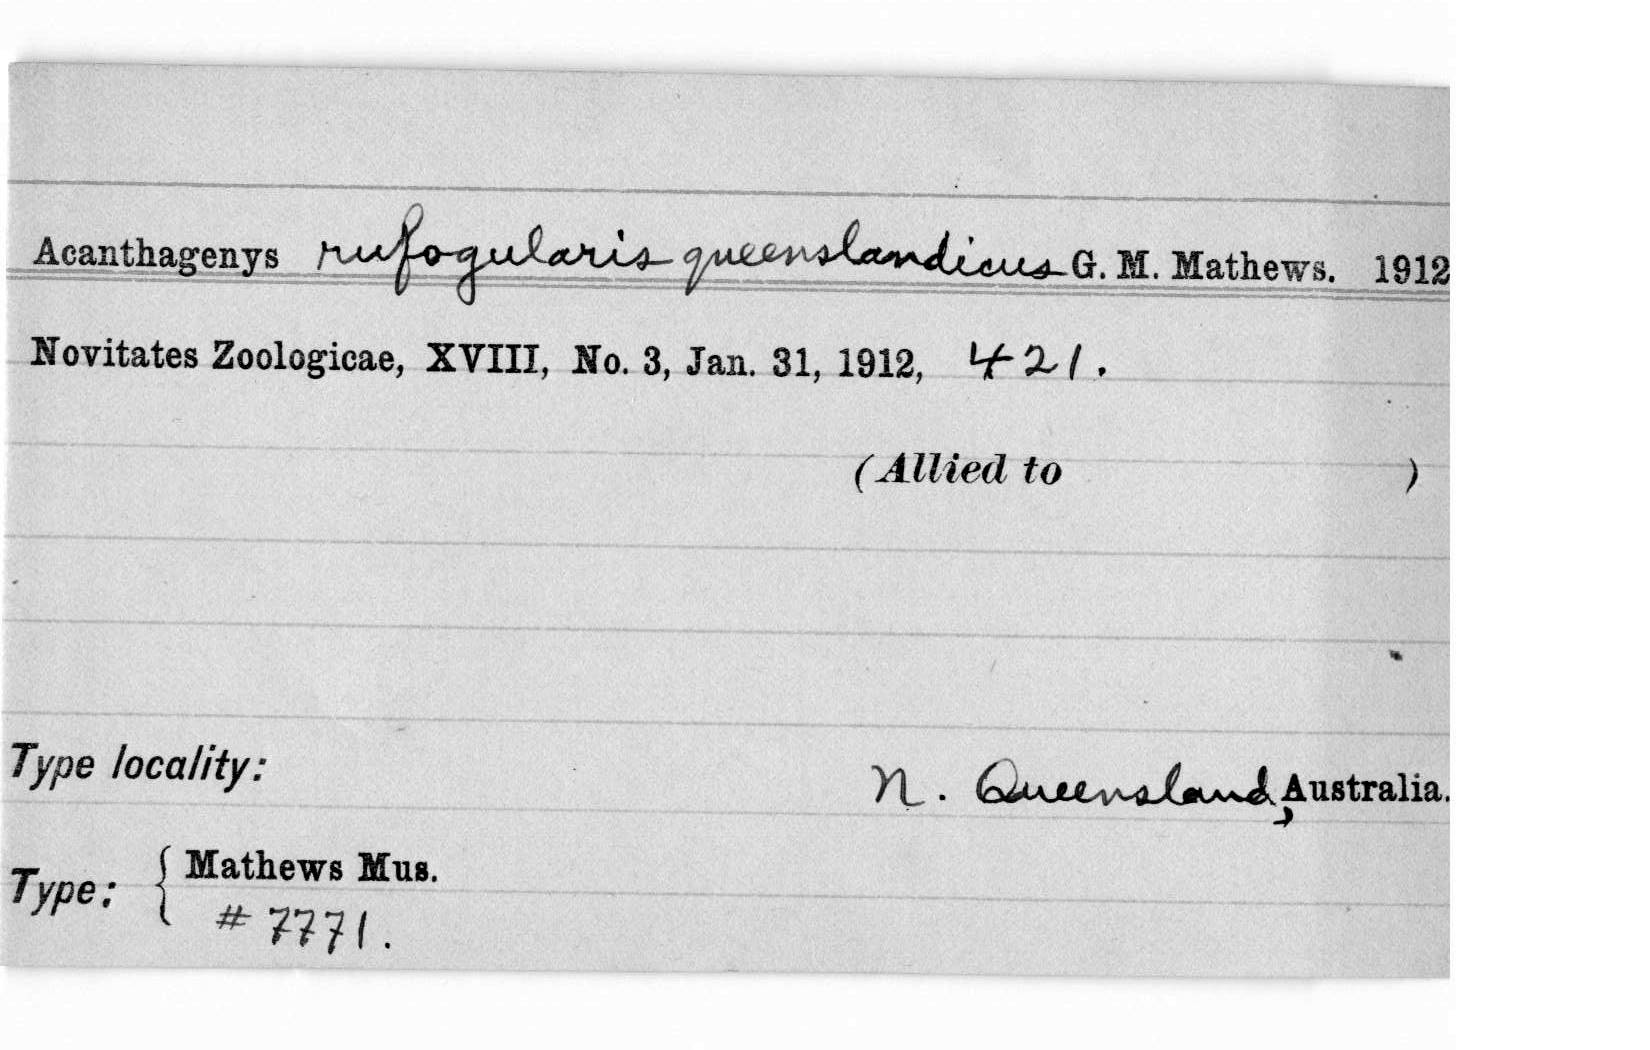 Acanthagenys rufogularis queenslandicus G. M. Mathews. 1912
Novitates Zoologicae, XVIII, No. 3, Jan. 31, 1912, 421.
(Allied to )
Type locality: N. Queensland, Australia.
Type: { Mathews Mus.
# 7771.